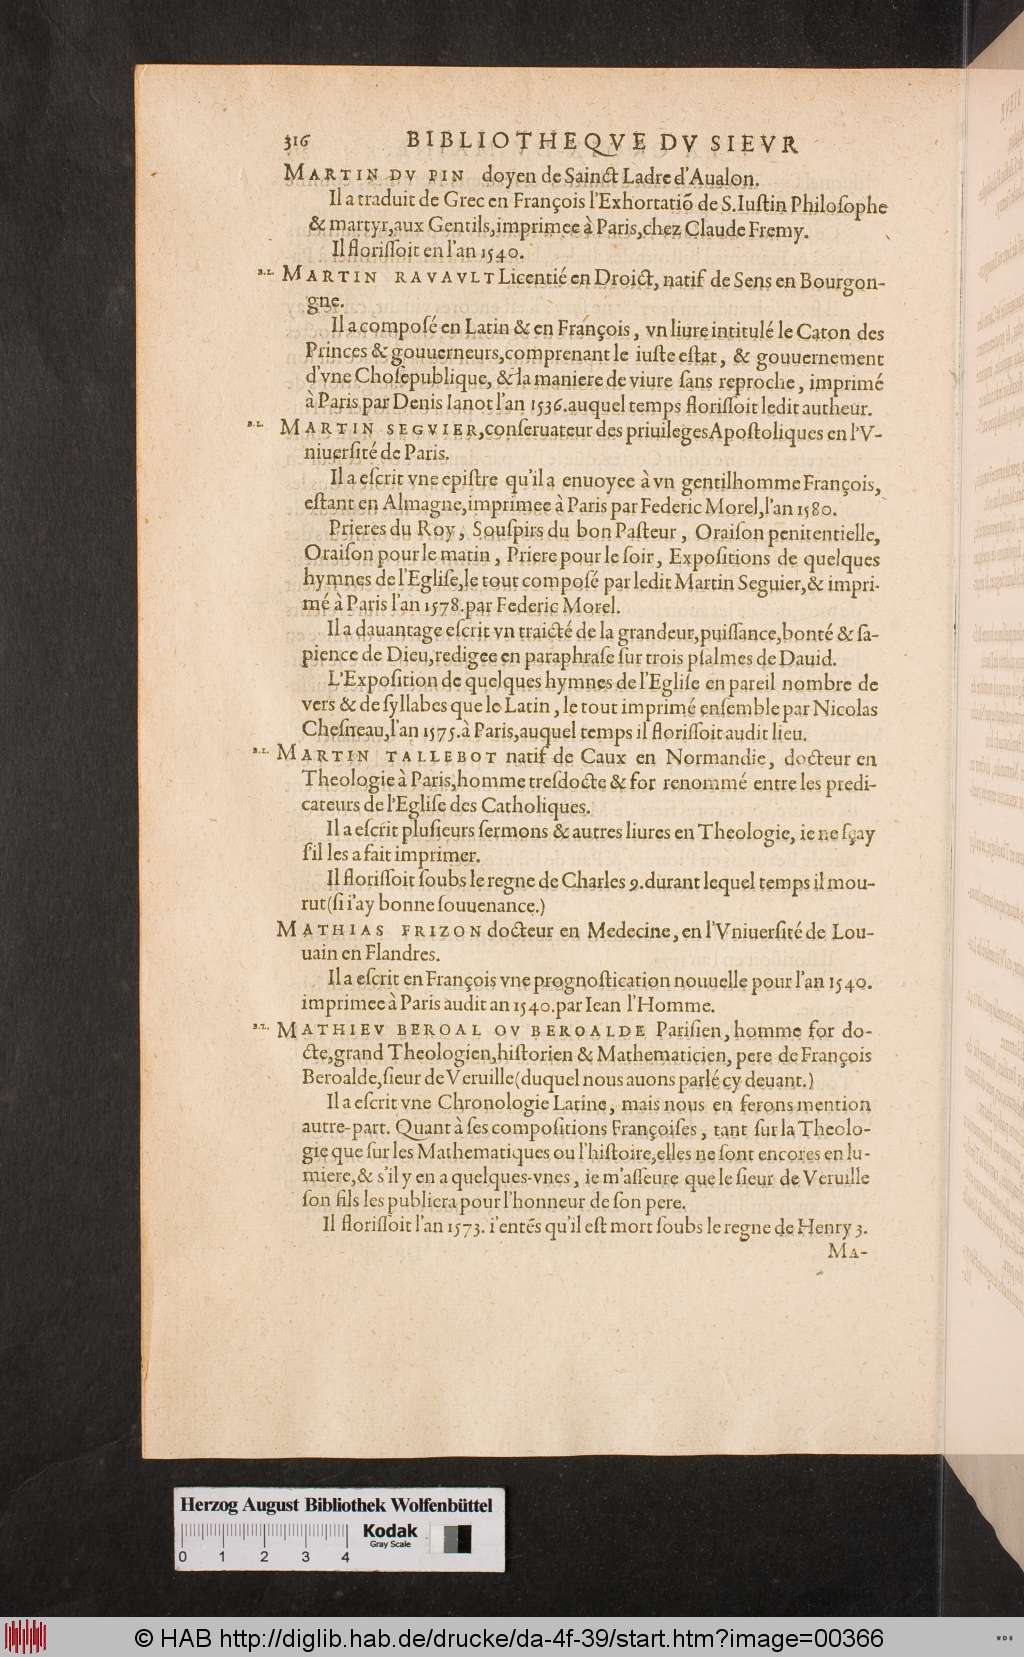 316 BIBLIOTHEQVE DV SIEVR
MARTIN DV PIN doyen de Sainct Ladre d'Aualon.
Il a traduit de Grec en François l'Exhortatiõ de S. Iuſtin Philoſophe
& martyr, aux Gentils, imprimee à Paris, chez Claude Fremy.
Il floriſſoit en l'an 1540.
B.L. MARTIN RAVAVLT Licentié en Droict, natif de Sens en Bourgon-
gne.
Il a compoſé en Latin & en François, vn liure intitulé le Caton des
Princes & gouuerneurs, comprenant le iuſte eſtat, & gouuernement
d'vne Choſepublique, & la maniere de viure ſans reproche, imprimé
à Paris par Denis Ianot l'an 1536. auquel temps floriſſoit ledit autheur.
B.L. MARTIN SEGVIER, conſeruateur des priuileges Apoſtoliques en l'V-
niuerſité de Paris.
Il a eſcrit vne epiſtre qu'il a enuoyee à vn gentilhomme François,
eſtant en Almagne, imprimee à Paris par Federic Morel, l'an 1580.
Prieres du Roy, Souſpirs du bon Paſteur, Oraiſon penitentielle,
Oraiſon pour le matin, Priere pour le ſoir, Expoſitions de quelques
hymnes de l'Egliſe, le tout compoſé par ledit Martin Seguier, & impri-
mé à Paris l'an 1578. par Federic Morel.
Il a dauantage eſcrit vn traicté de la grandeur, puiſſance, bonté & ſa-
pience de Dieu, redigee en paraphraſe ſur trois pſalmes de Dauid.
L'Expoſition de quelques hymnes de l'Egliſe en pareil nombre de
vers & de ſyllabes que le Latin, le tout imprimé enſemble par Nicolas
Cheſneau, l'an 1575. à Paris, auquel temps il floriſſoit audit lieu.
B.L. MARTIN TALLEBOT natif de Caux en Normandie, docteur en
Theologie à Paris, homme treſdocte & for renommé entre les predi-
cateurs de l'Egliſe des Catholiques.
Il a eſcrit pluſieurs ſermons & autres liures en Theologie, ie ne ſçay
ſil les a fait imprimer.
Il floriſſoit ſoubs le regne de Charles 9. durant lequel temps il mou-
rut (ſi i'ay bonne ſouuenance.)
MATHIAS FRIZON docteur en Medecine, en l'Vniuerſité de Lou-
uain en Flandres.
Il a eſcrit en François vne prognoſtication nouuelle pour l'an 1540.
imprimee à Paris audit an 1540. par Iean l'Homme.
B.L. MATHIEV BEROAL OV BEROALDE Pariſien, homme for do-
cte, grand Theologien, hiſtorien & Mathematicien, pere de François
Beroalde, ſieur de Veruille (duquel nous auons parlé cy deuant.)
Il a eſcrit vne Chronologie Latine, mais nous en ferons mention
autre-part. Quant à ſes compoſitions Françoiſes, tant ſur la Theolo-
gie que ſur les Mathematiques ou l'hiſtoire, elles ne ſont encores en lu-
miere, & s'il y en a quelques-vnes, ie m'aſſeure que le ſieur de Veruille
ſon fils les publiera pour l'honneur de ſon pere.
Il floriſſoit l'an 1573. i'entẽs qu'il eſt mort ſoubs le regne de Henry 3.
MA-
Herzog August Bibliothek Wolfenbüttel
0 1 2 3 4
Kodak
Gray Scale
© HAB http://diglib.hab.de/drucke/da-4f-39/start.htm?image=00366